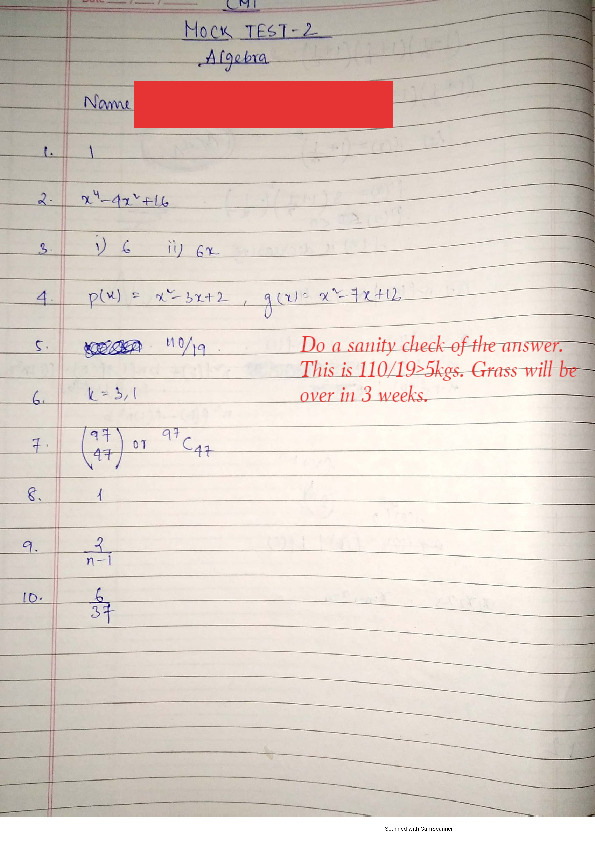 CMI
MOCK TEST-2
Algebra
Name
1. 1
2. x⁴-4x²+16
3 i) 6 ii) 6x
4. p(x) = x²-3x+2 , g(x) = x²-7x+12
5. 110/19. Do a sanity check of the answer.
This is 110/19≥5kgs. Grass will be
6. k = 3,1 over in 3 weeks.
7. (97 47) or ⁹⁷C₄₇
8. 1
9. 2/n-1
10. 6/37
Scanned with CamScanner